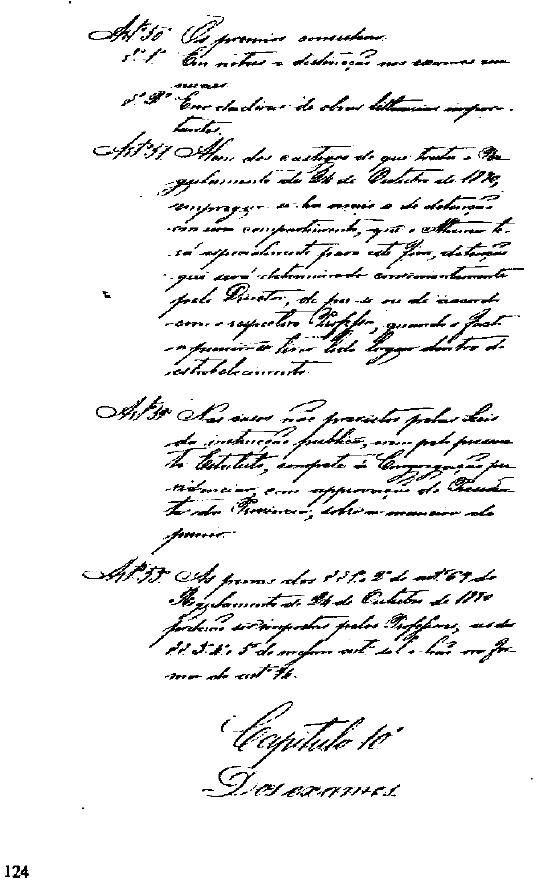 Artº 50º Os premios consistirão:
§º 1º Em notas e distincção nos exames an
nuaes
§º 2º Em dadivas de obras litterarias impor-
tantes.
Artº 51 Alem dos castigos de que trata o Re
gulamento de 24 de Outubro de 1870,
empregar-se-ha mais o de detenção
em um compartimento, que o Atheneu te
rá especialmente para este fim, detenção
que será determinada convenientemente
pelo Director, de per si ou de accordo
com o respectivo Professor, quando o facto
a punir-se tiver tido lugar dentro do
estabelecimento.
Artº 52 Nos casos não previstos pelas Leis
da instrucção publica, nem pelo presen
te Estatuto, compete á Congregação pro
videnciar, com approvação do Presiden
te da Provincia, sobre a maneira de
punir.
Artº 53º As penas dos §§ 1º e 2º do artº 69 do
Regulamento de 24 de Outubro de 1870
poderão ser impostas pelos Professores, as dos
§§ 3º 4º e 5º do mesmo artº se o hão na for
ma do artº 74.
Capitulo 10º
Dos exames.
124